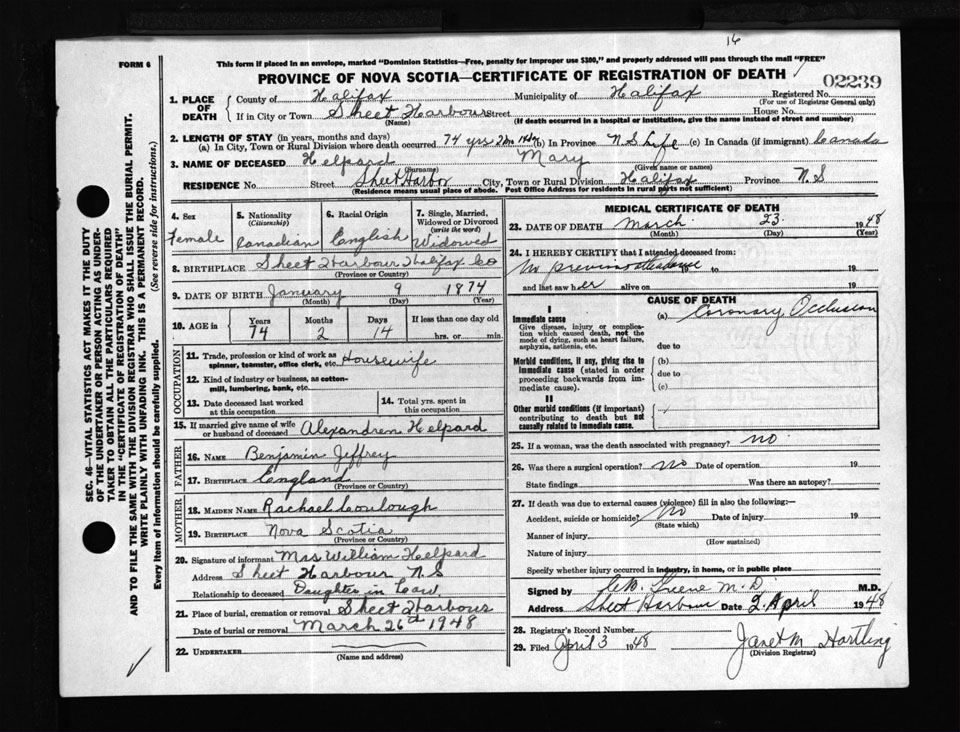 16
FORM 6
This form if placed in an envelope, marked "Dominion Statistics—Free, penalty for improper use $300," and properly addressed will pass through the mail "FREE"
PROVINCE OF NOVA SCOTIA—CERTIFICATE OF REGISTRATION OF DEATH
02239
1. PLACE OF DEATH
County of Halifax Municipality of Halifax Registered No.
(For use of Registrar General only)
If in City or Town Sheet Harbour Street House No.
(Name) (If death occurred in a hospital or institution, give the name instead of street and number)
2. LENGTH OF STAY (in years, months and days)
(a) In City, Town or Rural Division where death occurred 74 yrs 2 mo 14 dys (b) In Province N S Life (c) In Canada (if immigrant) Canada
3. NAME OF DECEASED Helpard Mary
(Surname) (Given name or names)
RESIDENCE No. Street Sheet Harbor City, Town or Rural Division Halifax Province N S
(Residence means usual place of abode. Post Office Address for residents in rural parts not sufficient)
4. Sex
Female
5. Nationality
(Citizenship)
Canadian
6. Racial Origin
English
7. Single, Married, Widowed or Divorced
(write the word)
Widowed
8. BIRTHPLACE Sheet Harbour Halifax Co
(Province or Country)
9. DATE OF BIRTH January 9 1874
(Month) (Day) (Year)
10. AGE in
Years Months Days If less than one day old
74 2 14 hrs. or min.
OCCUPATION
11. Trade, profession or kind of work as
spinner, teamster, office clerk, etc. Housewife
12. Kind of industry or business, as cotton-
mill, lumbering, bank, etc.
13. Date deceased last worked
at this occupation
14. Total yrs. spent in
this occupation
15. If married give name of wife
or husband of deceased Alexander Helpard
FATHER
16. Name Benjamin Jeffrey
17. Birthplace England
(Province or Country)
MOTHER
18. Maiden Name Rachael
19. Birthplace Nova Scotia
(Province or Country)
20. Signature of informant Mrs William Helpard
Address Sheet Harbour N.S
Relationship to deceased Daughter in Law
21. Place of burial, cremation or removal Sheet Harbour
Date of burial or removal March 26th 1948
22. UNDERTAKER
(Name and address)
MEDICAL CERTIFICATE OF DEATH
23. DATE OF DEATH March 23 1948
(Month) (Day) (Year)
24. I HEREBY CERTIFY that I attended deceased from:
No previous attendance to 19
and last saw her alive on 19
CAUSE OF DEATH
I
Immediate cause
Give disease, injury or complica-
tion which caused death, not the
mode of dying, such as heart failure,
asphyxia, asthenia, etc.
(a) Coronary Occlusion
due to
Morbid conditions, if any, giving rise to
immediate cause (stated in order
proceeding backwards from im-
mediate cause).
(b)
due to
(c)
II
Other morbid conditions (if important)
contributing to death but not
causally related to immediate cause.
25. If a woman, was the death associated with pregnancy? no
26. Was there a surgical operation? No Date of operation 19
State findings Was there an autopsy?
27. If death was due to external causes (violence) fill in also the following:—
Accident, suicide or homicide? No Date of injury 19
(State which)
Manner of injury
(How sustained)
Nature of injury
Specify whether injury occurred in industry, in home, or in public place
Signed by Greene M.D. M.D.
Address Sheet Harbour Date 2 April 1948
28. Registrar's Record Number
29. Filed April 3 1948 Janet M Hartling
(Division Registrar)
SEC. 46—VITAL STATISTICS ACT MAKES IT THE DUTY
OF THE UNDERTAKER OR PERSON ACTING AS UNDER-
TAKER TO OBTAIN ALL THE PARTICULARS REQUIRED
IN THE "CERTIFICATE OF REGISTRATION OF DEATH"
AND TO FILE THE SAME WITH THE DIVISION REGISTRAR WHO SHALL ISSUE THE BURIAL PERMIT.
WRITE PLAINLY WITH UNFADING INK. THIS IS A PERMANENT RECORD.
Every item of information should be carefully supplied. (See reverse side for instructions.)